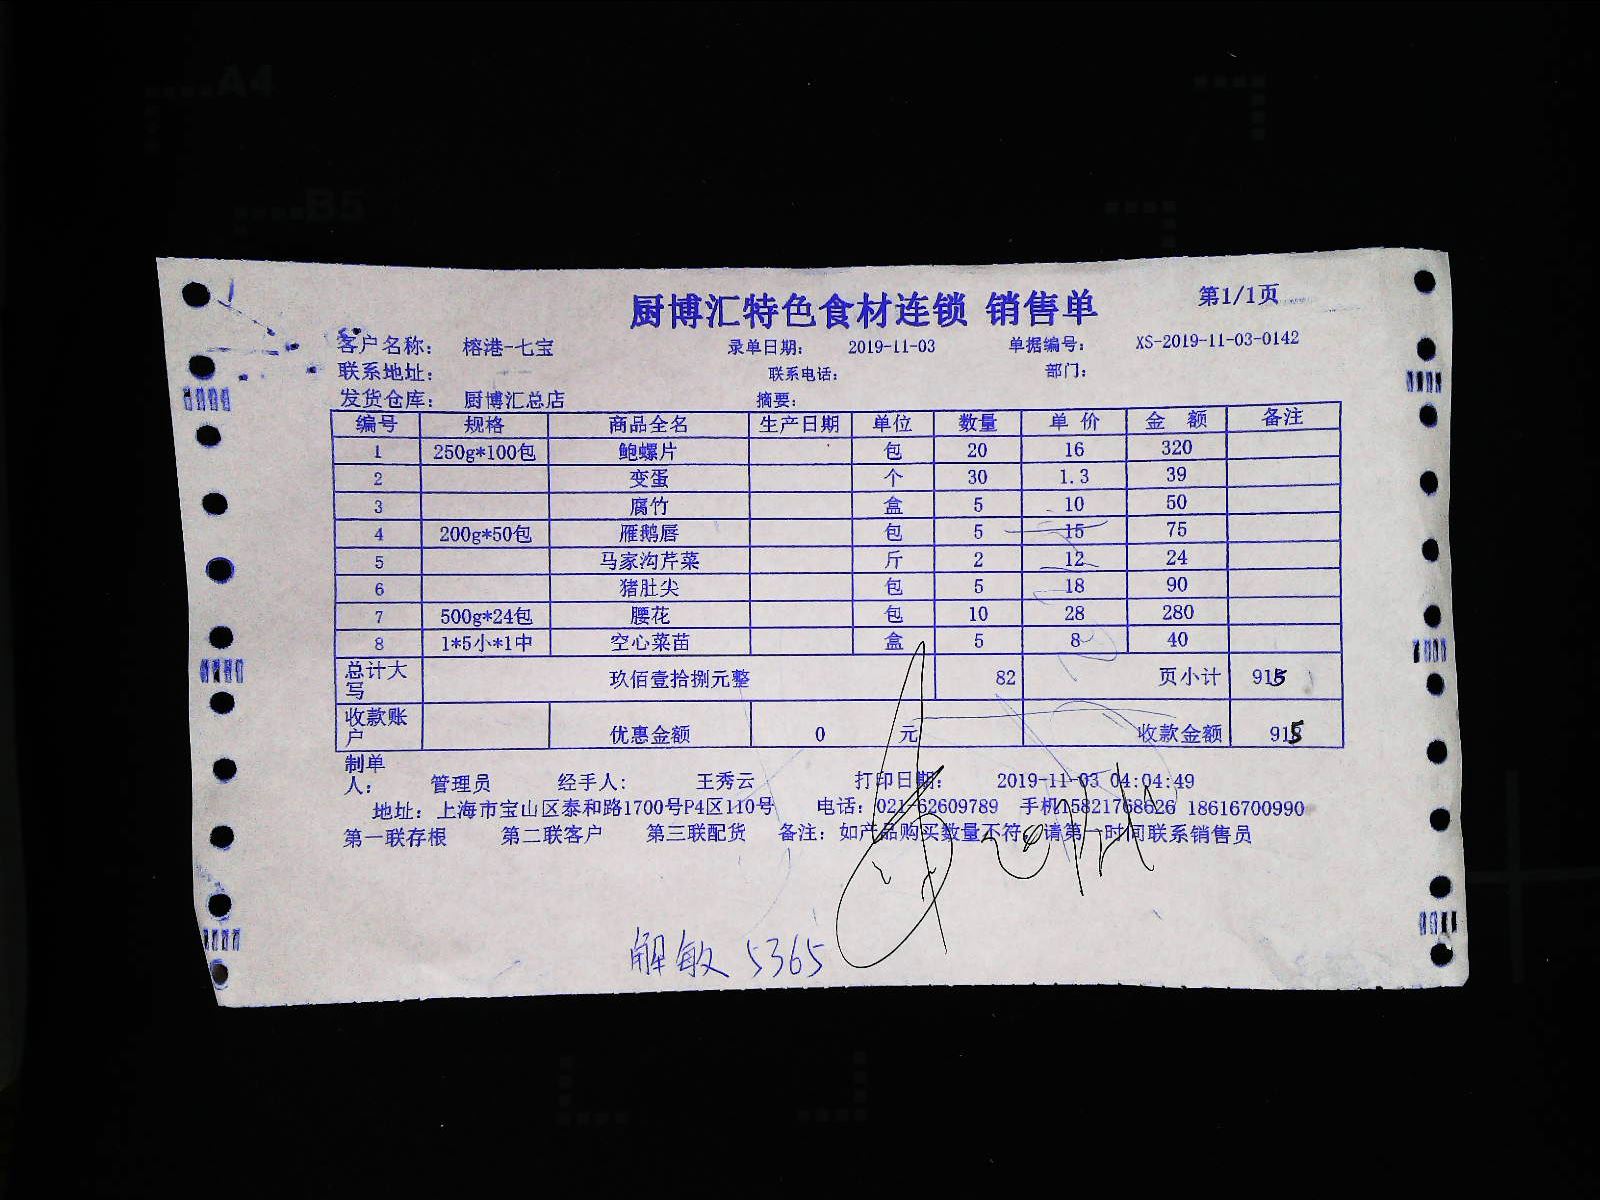 A4
B5
厨博汇特色食材连锁 销售单
第1/1页
客户名称： 榕港-七宝 录单日期： 2019-11-03 单据编号： XS-2019-11-03-0142
联系地址： 联系电话： 部门：
发货仓库： 厨博汇总店 摘要：
编号 规格 商品全名 生产日期 单位 数量 单 价 金 额 备注
1 250g*100包 鲍螺片 包 20 16 320
2 变蛋 个 30 1.3 39
3 腐竹 盒 5 10 50
4 200g*50包 雁鹅唇 包 5 15 75
5 马家沟芹菜 斤 2 12 24
6 猪肚尖 包 5 18 90
7 500g*24包 腰花 包 10 28 280
8 1*5小*1中 空心菜苗 盒 5 8 40
总计大写 玖佰壹拾捌元整 82 页小计 915
收款账户 优惠金额 0 元 收款金额 915
制单人： 管理员 经手人： 王秀云 打印日期： 2019-11-03 04:04:49
地址：上海市宝山区泰和路1700号P4区110号 电话：021-62609789 手机15821768626 18616700990
第一联存根 第二联客户 第三联配货 备注：如产品购买数量不符，请第一时间联系销售员
解敏 5365